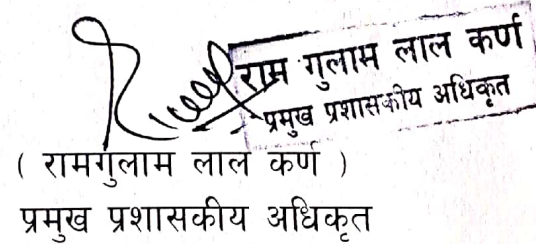 राम गुलाम लाल कर्ण
प्रमुख प्रशासकीय अधिकृत
( रामगुलाम लाल कर्ण )
प्रमुख प्रशासकीय अधिकृत